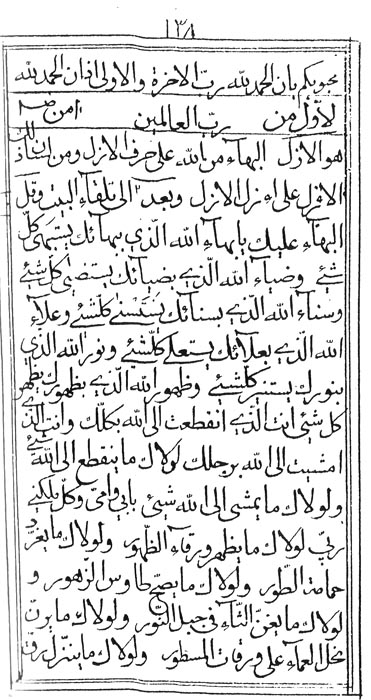 ١٣٨
محبوبكم بان الحمد لله ربّ الاخرة والاولى اذ ان الحمد لله
لاوّل من ربّ العالمين امن
هو الازل البهاء من الله على حرف الازل ومن
الاوّل على ازل الازل وبعد الى تلقاء البيت وقل
البهاء عليك يا بهاء الله الّذي ببهائك يتبهى كلّ
شئ وضياء الله الّذي بضيائك يستضئ كلّ شئ
وسناء الله الّذي بسنائك يستسنى كلشئ وعلاء
الله الّذي بعلائك يستعلى كلّشئ ونور الله الّذي
بنورك يستنير كلّشئ وظهور الله الّذي بظهورك يظهر
كل شئ انت الّذي انقطعت الى الله بكلّك وانت الّذي
امشيت الى الله برجلك لولاك ما ينقطع الى الله شئ
ولولاك ما يمشى الى الله شئ بابي وامّي وكلّ ما يملكني
ربّي لولاك ما يظهر ورقاء الظّهور ولولاك ما يغرّد
حمامة الطّور ولولاك ما يصيح طاوس الزّهور و
لولاك ما يغنّ الثّاء في جبل النّور ولولاك ما يرنّ
نحل العماء على ورقات المسطور ولولاك ما ينزل